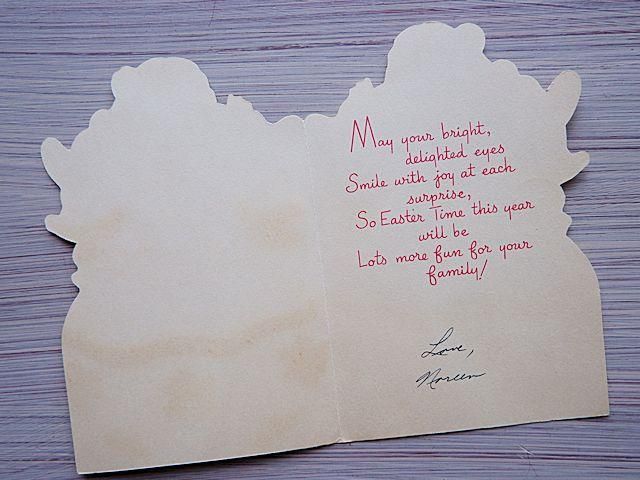 May your bright,
delighted eyes
Smile with joy at each
surprise,
So Easter Time this year
will be
Lots more fun for your
family!
Love,
Noreen